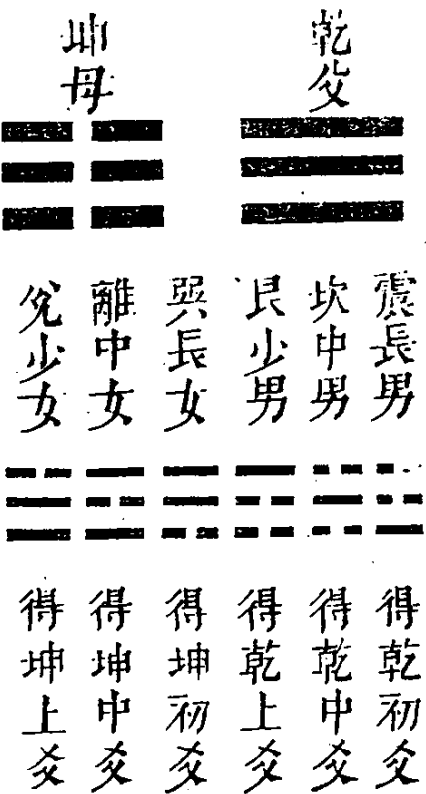 乾父
坤母
震長男
坎中男
艮少男
巽長女
離中女
兌少女
得乾初爻
得乾中爻
得乾上爻
得坤初爻
得坤中爻
得坤上爻